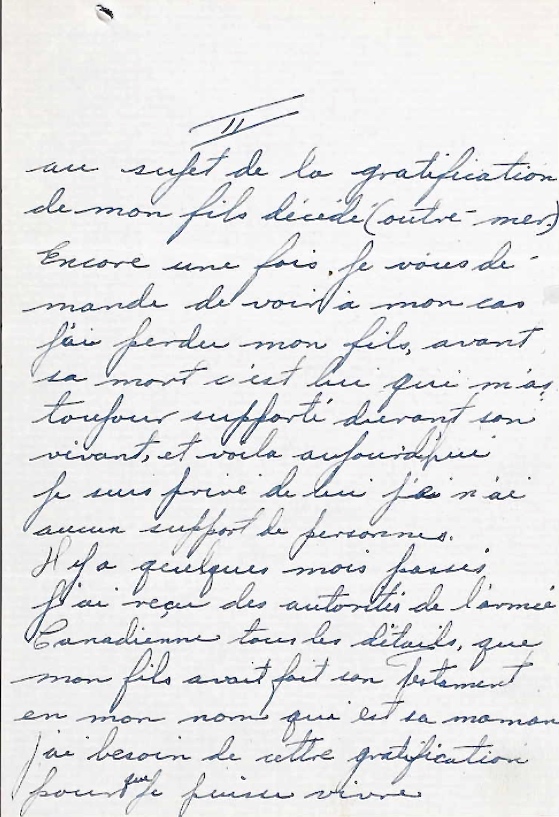 II
au sujet de la gratification
de mon fils décédé (outre-mer)
Encore une fois, je vous de-
mande de voir à mon cas
j'ai perdu mon fils, avant
sa mort c'est lui qui m'as
toujour supporté durant son
vivant, et voila aujourd'hui
je suis privé de lui j'ai n'ai
aucun support de personnes.
Il y a quelques mois passés
j'ai reçu des autorités de l'armée
Canadienne tous les détails, que
mon fils avait fait son Testament
en mon nom qui est sa maman
j'ai besoin de cette gratification
pour que je puisse vivre